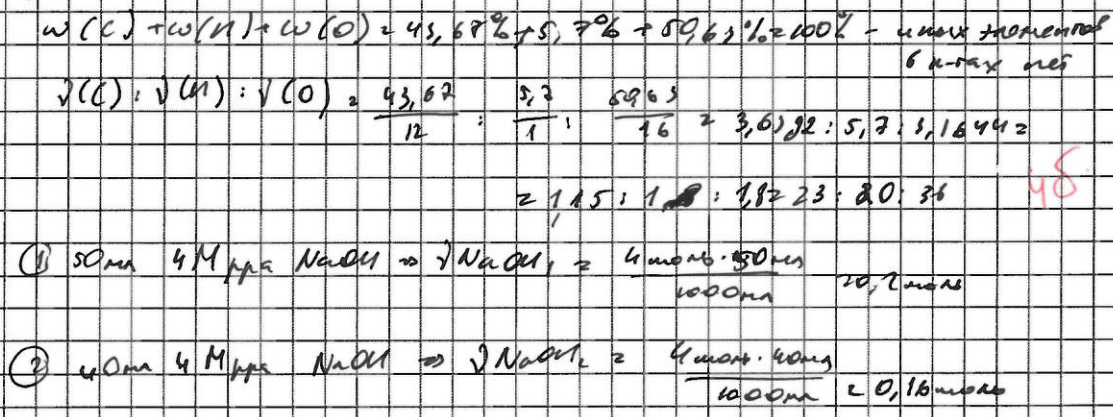 ω(C) + ω(H) + ω(O) = 43,67% + 5,7% + 50,63% = 100% - иных элементов
в к-тах нет
ν(C) : ν(H) : ν(O) = 43,67/12 : 5,7/1 : 50,63/16 = 3,6392 : 5,7 : 3,1644 =
= 1,15 : 1 : 1,8 = 23 : 20 : 36
4б
① 50мл 4М р-ра NaOH => νNaOH₁ = 4моль·50мл/1000мл = 0,2моль
② 40мл 4М р-ра NaOH => νNaOH₂ = 4моль·40мл/1000мл = 0,16моль